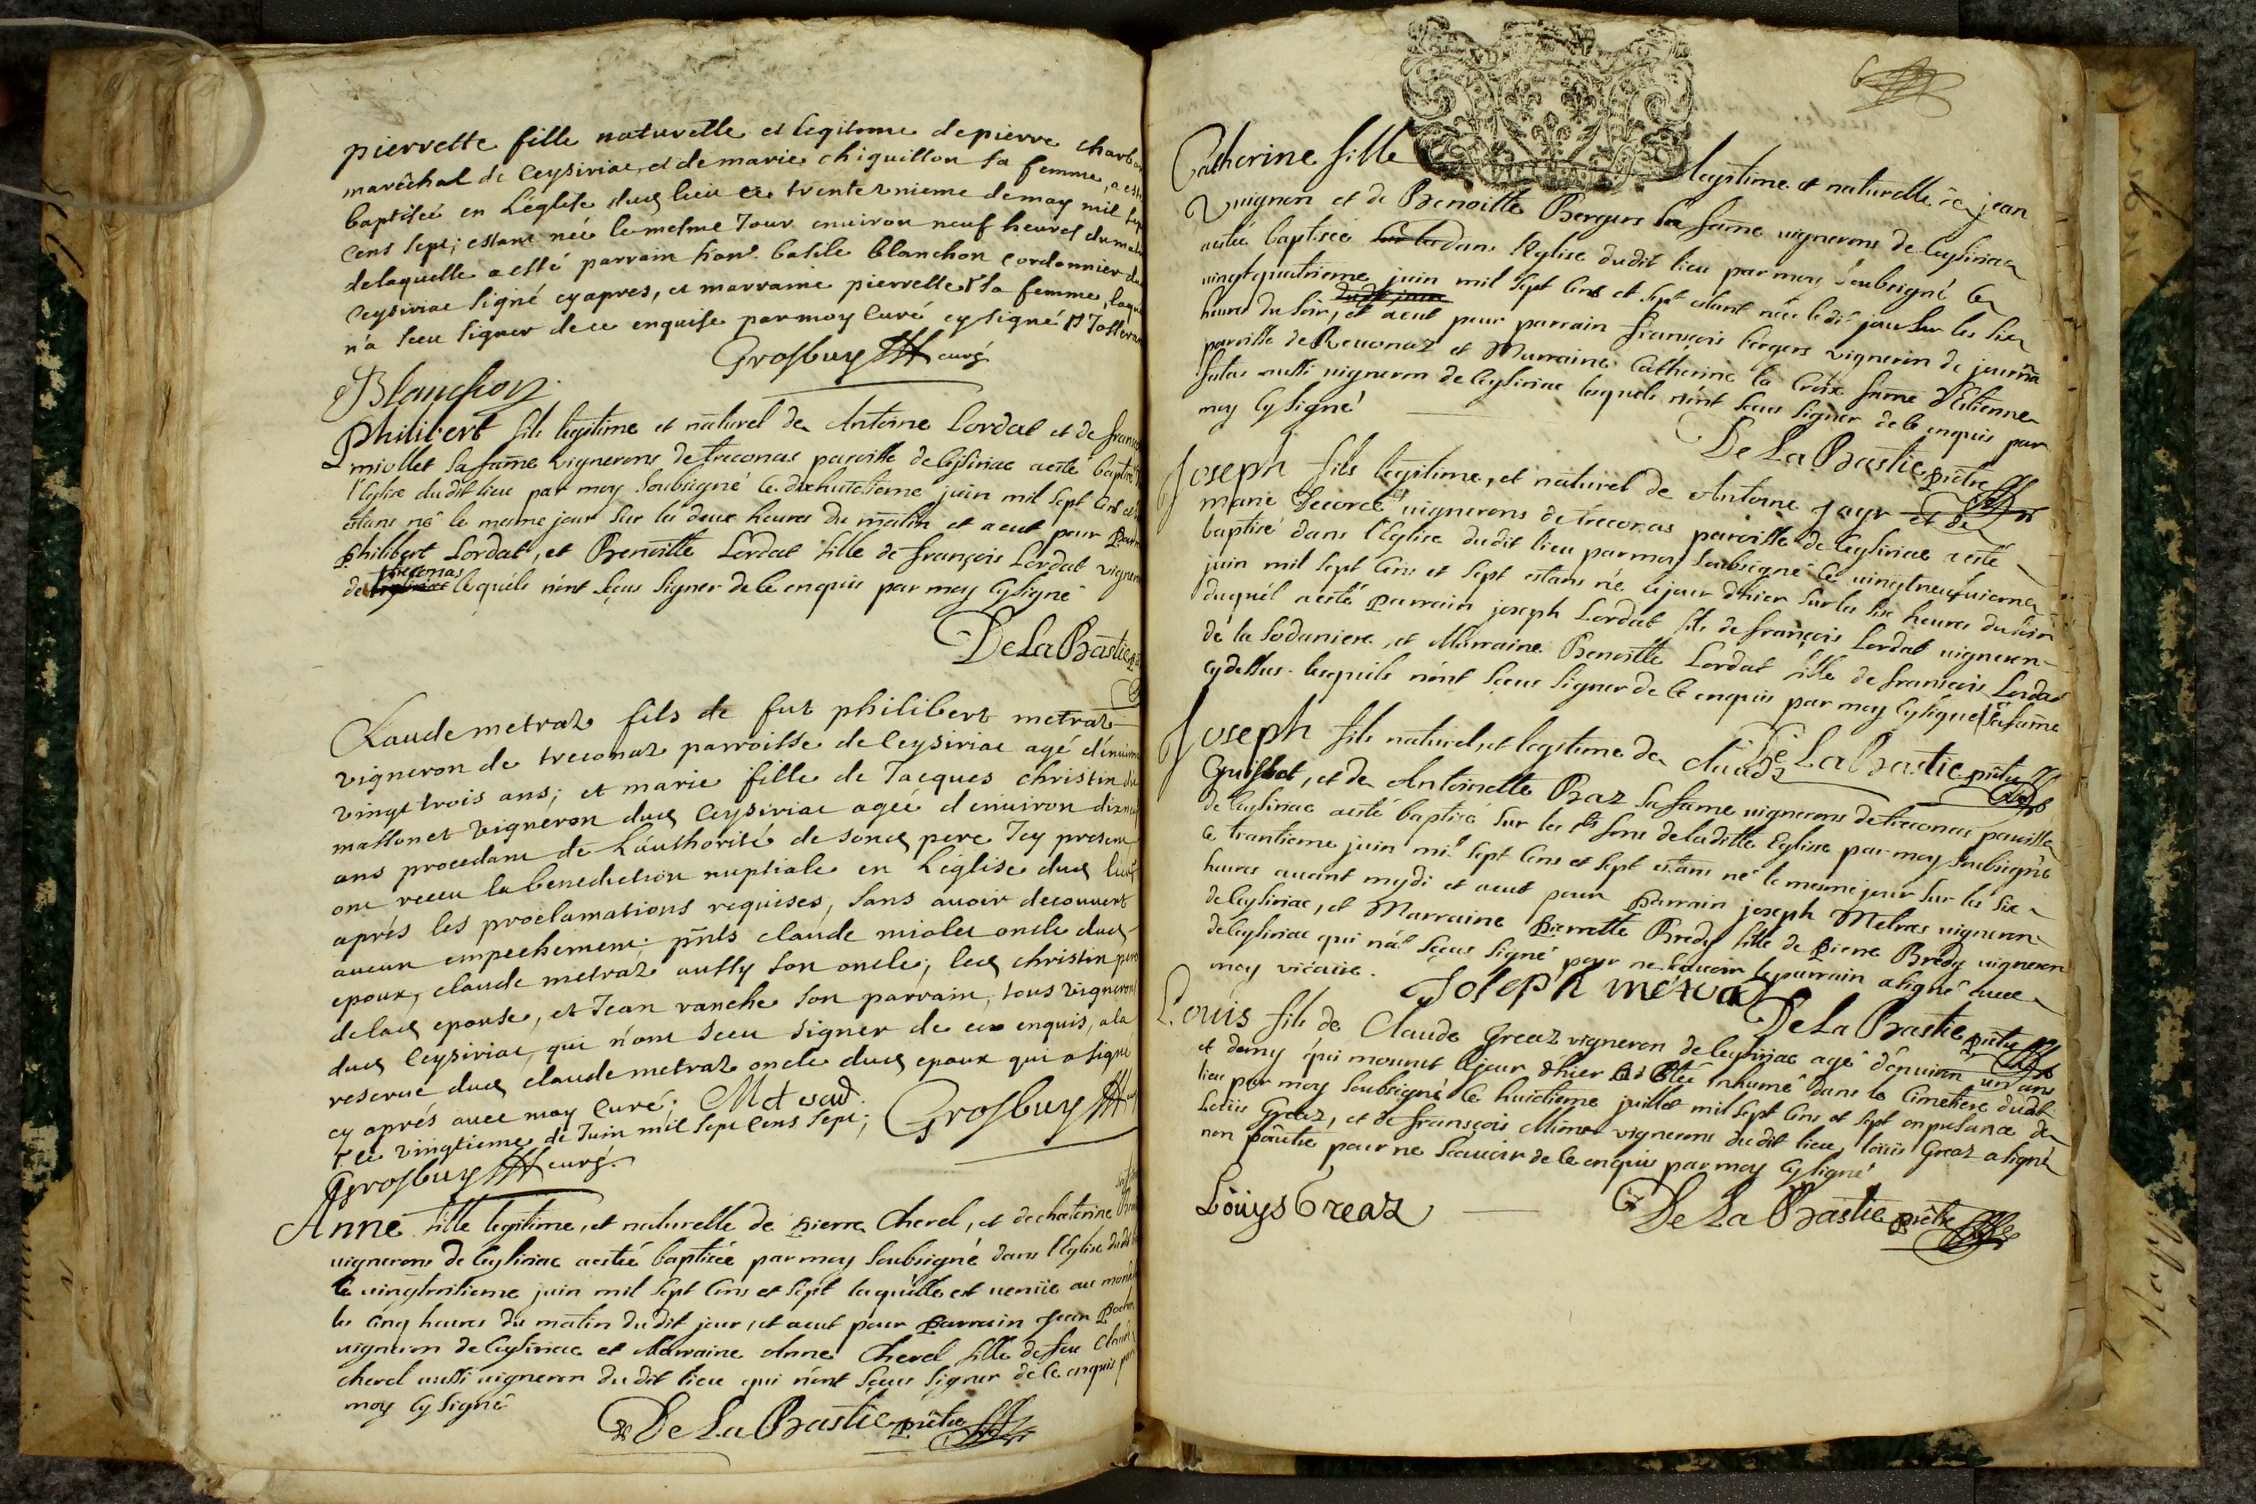 pierrette fille naturelle et legitime de pierre charbon
maréchal de Ceysiriac, et de marie chiquillon sa femme, a esté
baptisée en L'église dud lieu ce trente unieme de may mil sept
cens sept; estant née le mesme Jour environ neuf heures du matin
de laquelle a esté parrain hon. basile blanchon cordonnier du
Ceysiriac signé cy apres, et marraine pierrette sa femme, laquelle
n'a sceu signer de ce enquise par moy curé cy signé
Grosbuy curé
Blanchon
Philibert fils legitime et naturel de Antoine Lordat et de
miollet sa fame vignerons de treconas paroisse de Ceysiriac a esté baptisé
l'Eglise dudit lieu par moy soubsigné le dixhuictieme juin mil sept cens et
estans né le mesme jour sur les deux heures du matin et a eut pour
Philibert Lordat, et Benoitte Lordat fille de françois Lordat vigneron
de treconas lesquels n'ont sçeus signer de ce enquis par moy cy signé
De La Bastie
Claude metraz fils de fut philibert metraz
vigneron de treconaz parroisse de Ceysiriac agé d'environ
vingt trois ans; et marie fille de Jacques christin du
massonet vigneron dud Ceysiriac agée d'environ dix neuf
ans procedant de L'authorité de sond pere Icy present
ont receu la benediction nuptiale en L'église dud lieu
aprés les proclamations requises, sans avoir decouvert
aucun empechement: pnts claude miolet oncle dud
epoux, claude metraz aussy son oncle, led christin pere
de lad epouse, et Jean ranche son parrain, tous vignerons
dud Ceysiriac, qui n'ont sceu signer de ce enquis, a la
reserve dud claude metraz oncle dud epoux qui a signé
cy aprés avec moy curé;
Grosbuy
ce vingtieme de Juin mil sept cens sept;
Grosbuy curé
Anne fille legitime, et naturelle de Pierre Cherel, et de chaterine
vignerons de Ceysiriac a esté baptisée par moy soubsigné dans l'Eglise dudit
le vingthuitieme juin mil sept cens et sept laquelle est venüe au monde
les cinq heures du matin dudit jour, et a eut pour Parrain Jean
vigneron de Ceysiriac et Marraine Anne Cherel fille de feu Claude
cherel aussi vigneron dudit lieu qui n'ont sçeus signer de ce enquis par
moy cy signé
De La Bastie prêtre
6
Catherine fille legitime et naturelle de jean
Vuignon et de Benoitte Bergers sa fame vignerons de Ceysiriac
a esté baptisée dans l'Eglise dudit lieu par moy soubsigné le
vingtquatrieme juin mil sept cens et sept estant née ledit jour sur les six
heures du soir, et a eut pour parrain françois bergers vigneron de journã
paroisse de Revonaz et Marraine Catherine la Croix fame d'Estienne
aussi vigneron de Ceysiriac lesquels n'ont sçeus signer de ce enquis par
moy cy signé
De La Bastie prêtre
Joseph fils legitime, et naturel de Antoine Jayr et de
marie Decorce vignerons de treconas paroisse de Ceysiriac a esté
baptisé dans l'Eglise dudit lieu par moy soubsigné le vingtneufvieme
juin mil sept cens et sept estans né le jour d'hier sur les six heures du soir
duquel a esté parrain joseph Lordat fils de françois Lordat vigneron
de la Sodaniere, et Marraine Benoitte Lordat fille de françois Lordat
cydessus lesquels n'ont sçeus signer de ce enquis par moy cy signé sa fame
De La Bastie prêtre
Joseph fils naturel, et legitime de Claude
et de Antoinette Braz sa fame vignerons de treconas paroisse
de Ceysiriac a esté baptisé sur les sts fons de laditte Eglise par moy soubsigné
le trantieme juin mil sept cens et sept estans né le mesme jour sur les six
heures avant mydi et a eut pour Parrain joseph Metras vigneron
de Ceysiriac, et Marraine Pierrette Bredy fille de Pierre Bredy vigneron
de Ceysiriac qui n'a sçeus signé pour ne sçavoir le parrain a signé avec
moy vicaire.
Joseph métraz
De La Bastie prêtre
Louis fils de Claude Greaz vigneron de Ceysiriac agé d'environ un ans
et demy qui mourut le jour d'hier a esté inhumé dans le Cimetiere dudit
lieu par moy soubsigné le huictieme juillet mil sept cens et sept en presence de
Loüis Greaz, et de françois vignerons dudit lieu, loüis Greaz a signé
non l'autre pour ne sçavoir de ce enquis par moy cy signé
Loüys Greaz
De La Bastie prêtre